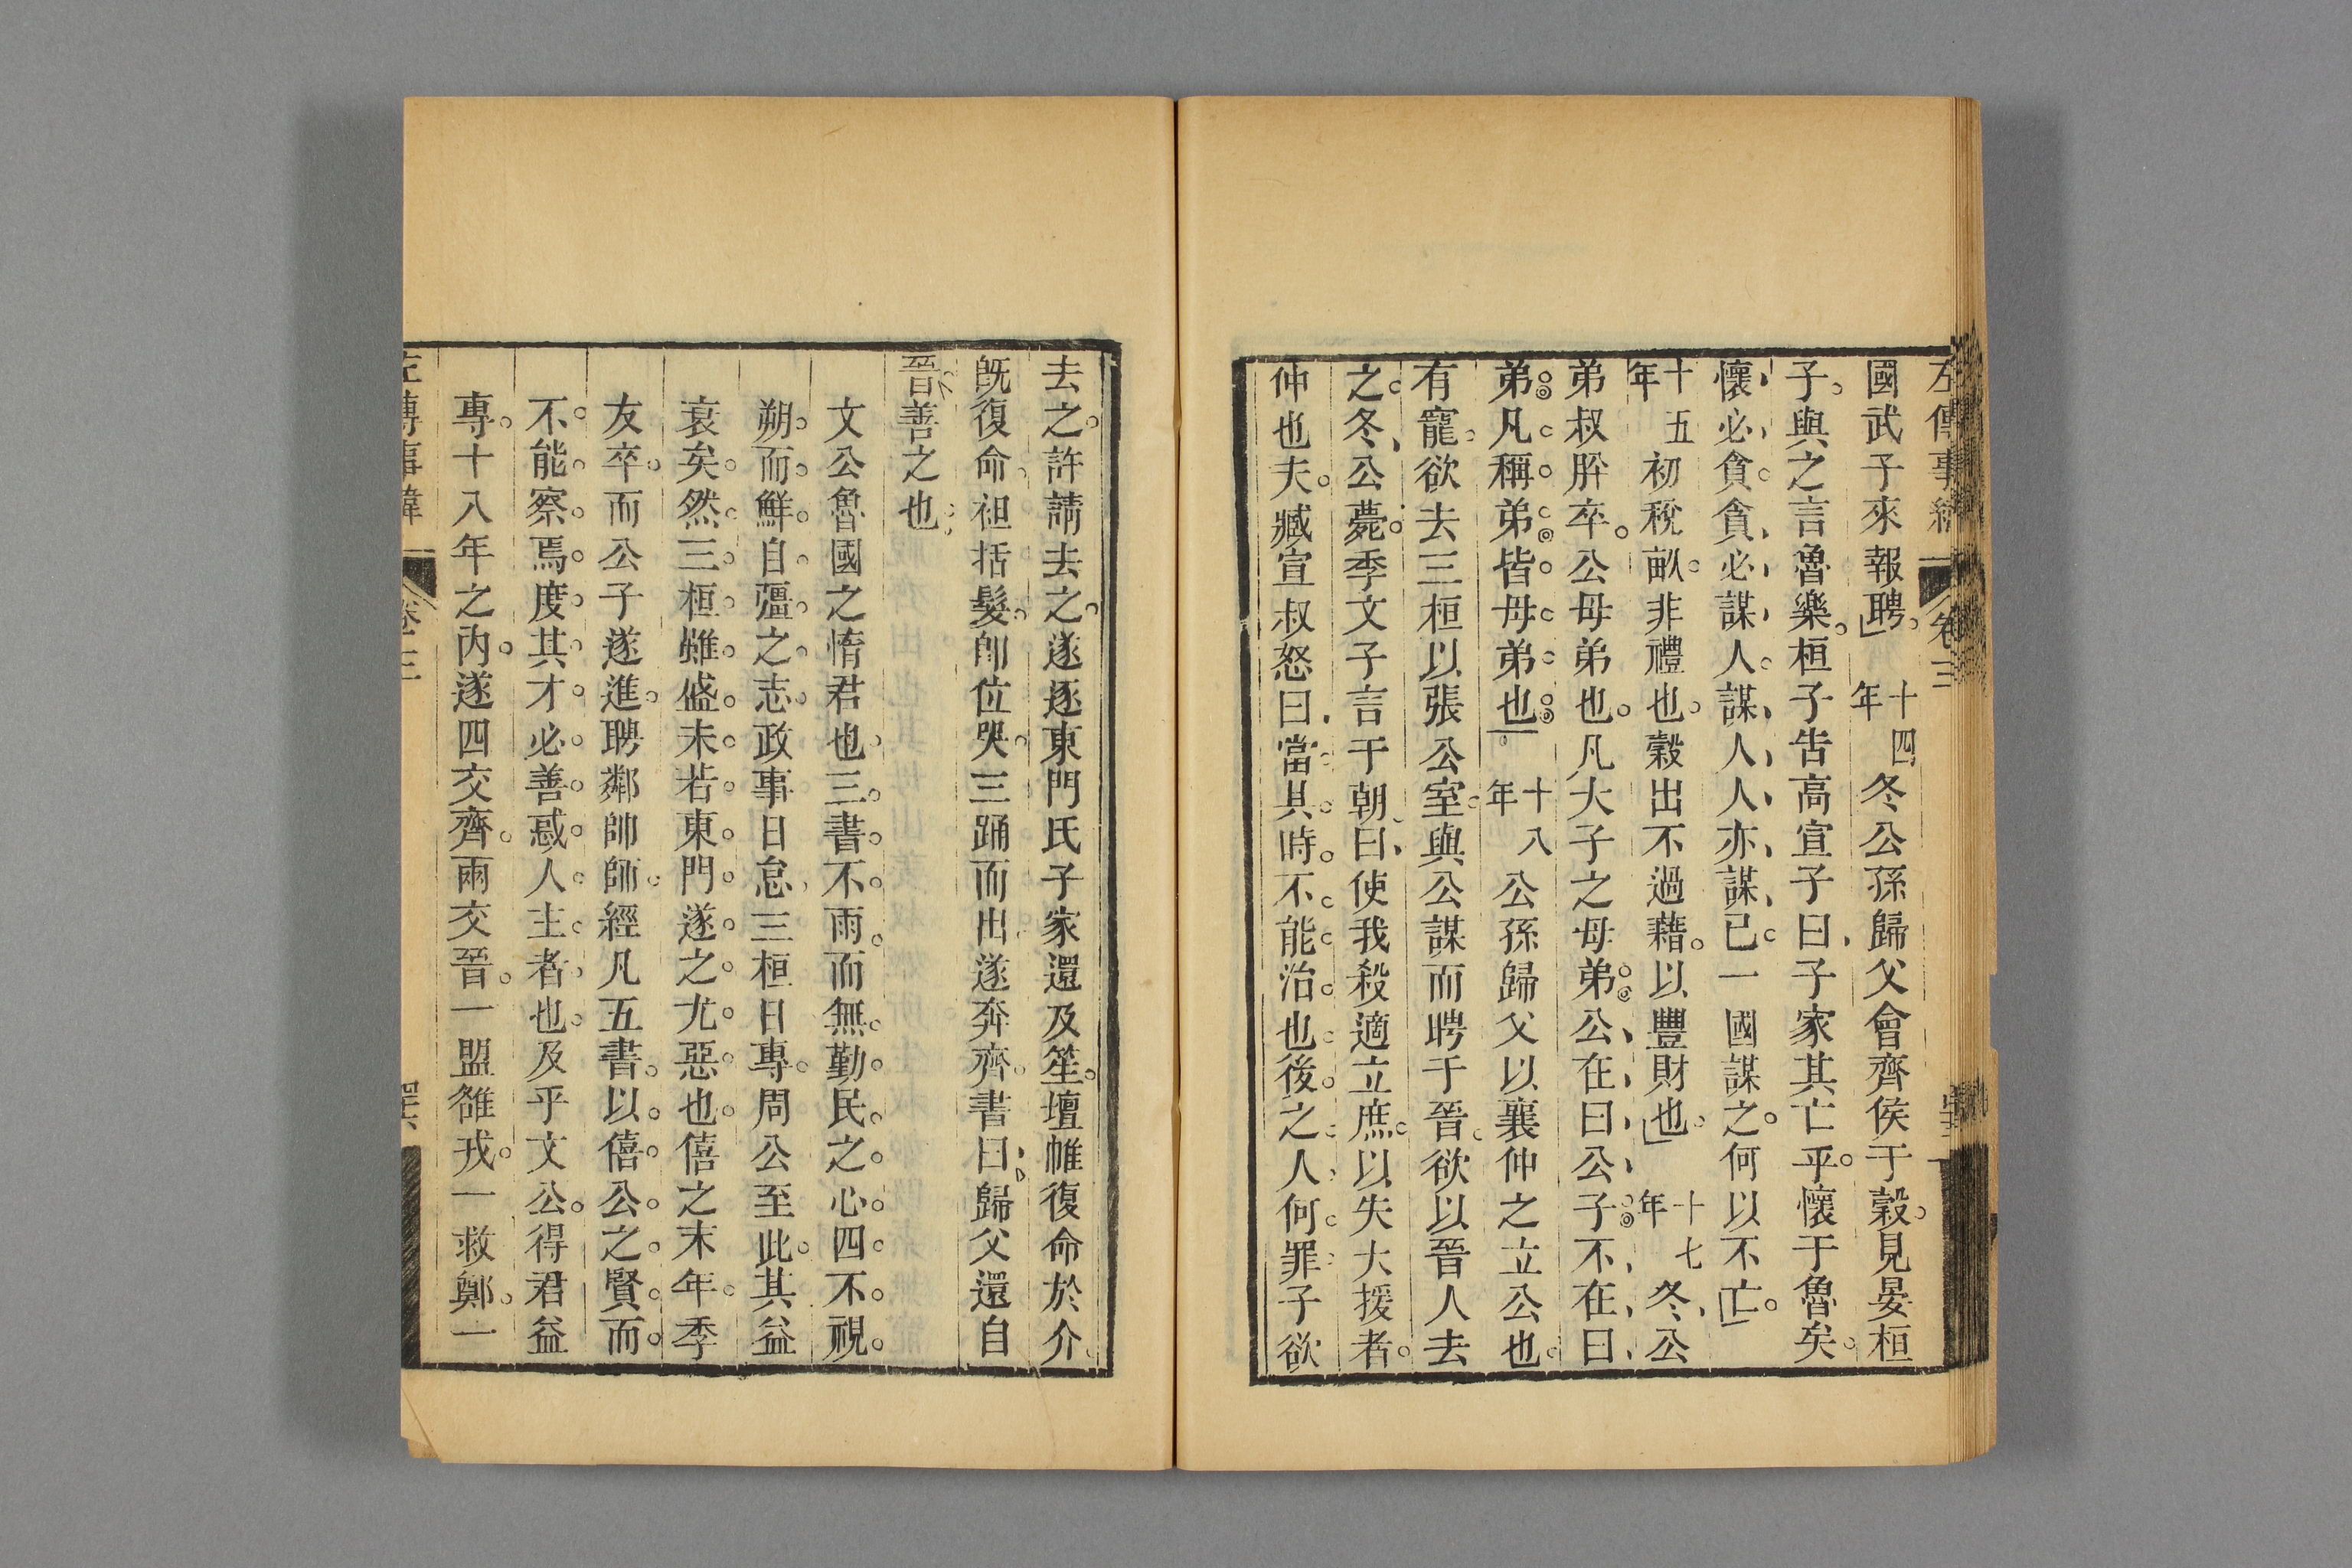 左傳事緯
卷三
國武子來報聘。十四年冬公孫歸父會齊侯于穀。見晏桓
子。與之言魯樂。桓子告高宣子曰、子家其亡乎。懷于魯矣。
懷、必、貪。貪、必、謀、人。謀、人、人、亦、謀、已。一國謀之。何以不亡。
十五年初稅畝。非禮也。穀出不過藉。以豐財也。十七年冬、公
弟叔肸卒。公母弟也。凡大子之母弟。公、在、曰、公、子。不、在、曰、
弟。凡。稱。弟。皆。母。弟。也。十八年公孫歸父以襄仲之立公也。
有寵。欲去三桓以張公室。與公謀而聘于晉。欲以晉人去
之。冬、公薨。季文子言于朝、曰、使我殺適立庶。以失大援者。
仲也夫。臧宣叔怒曰、當。其。時。不。能。治。也。後。之。人。何。罪。子欲
去之。許請去之。遂逐東門氏子家還及笙。壇帷復命於介。
旣復命。袒括髮。卽位哭。三踊而出。遂奔齊。書曰、歸父還自
晉善之也
文公魯國之惰君也。三。書。不。雨。而無。勤。民。之。心。四。不。視。
朔。而。鮮。自。彊。之。志。政事日怠、三桓日專。周公至此。其益
衰矣。然。三。桓。雖。盛。未。若。東。門。遂。之。尤。惡。也。僖之末年。季
友卒。而公子遂進。聘鄰帥師。經凡五書。以。僖。公。之。賢。而。
不。能。察。焉。度。其。才。必。善。惑。人。主。者。也。及乎文公。得君益
專。十八年之內。遂四交齊。兩交晉。一盟雒戎。一救鄭。一
左傳事緯
卷三